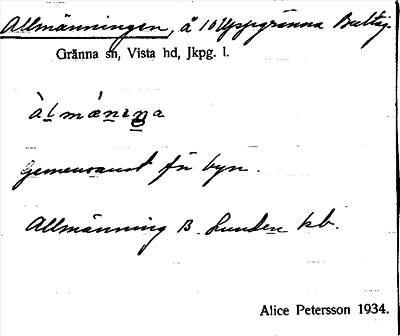 Allmänningen, å 10 Uppgränna Bultsj.
Gränna sn, Vista hd, Jkpg. l.
àlmániŋa
Gemensamt för byn.
Allmänning B. Lunden kb.
Alice Petersson 1934.